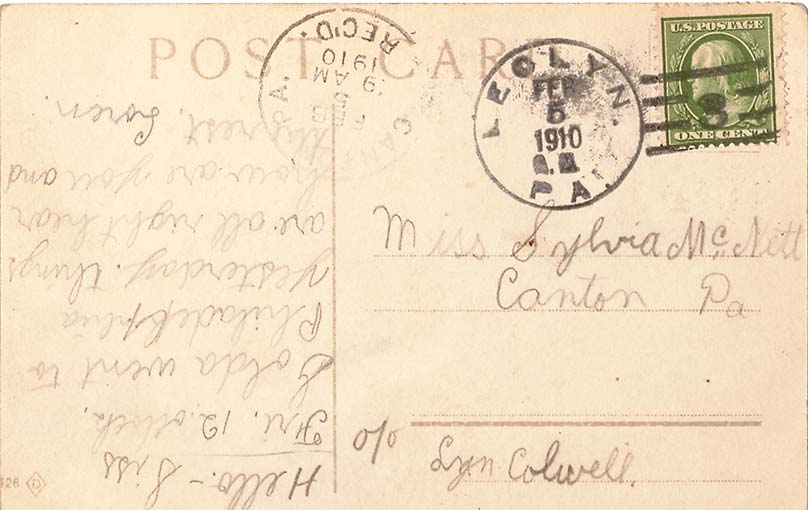 POST CARD
U.S. POSTAGE
ONE CENT
LEOLYN.
FEB
5
1910
PA.
REC'D.
1910
9 AM
A.
Miss Sylvia McNett
Canton Pa
c/o
Lyn Colwell.
Hello - Siss
Fri. 12. oclock.
Golda went to
Philadelphia
yesterday. things
are all right hear
how are you and
the rest. Loren.
426 D